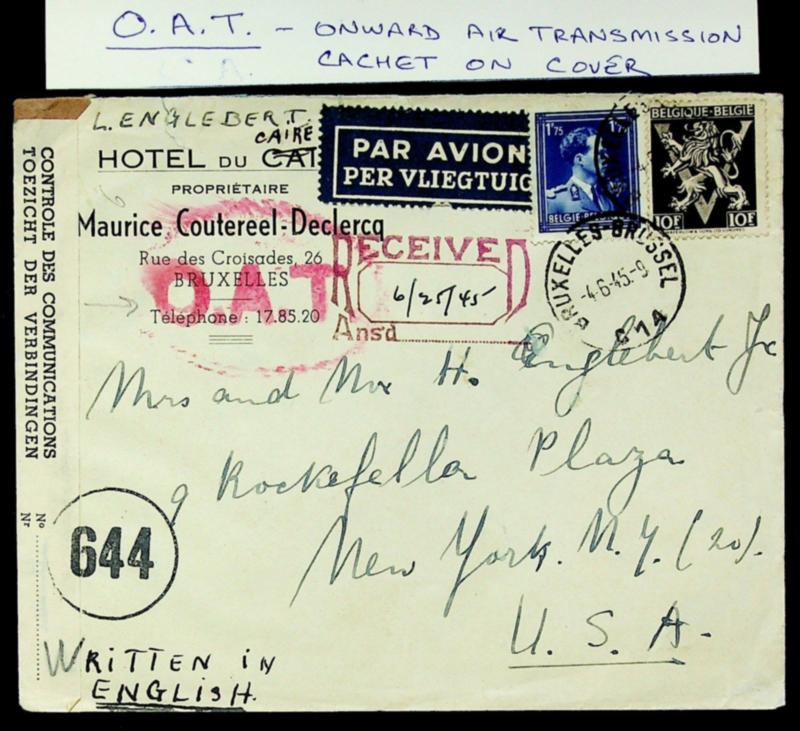 O.A.T. - ONWARD AIR TRANSMISSION
CACHET ON COVER
L. ENGLEBERT.
CAIRE
HOTEL DU CAI
PROPRIÉTAIRE
Maurice Coutereel-Declercq
Rue des Croisades, 26
BRUXELLES
Téléphone : 17.85.20
OAT
PAR AVION
PER VLIEGTUIG
1F75
BELGIE-BELGIQUE
BELGIQUE-BELGIE
V
10F 10F
RECEIVED
6/25/45
Ans'd
BRUXELLES-BRUSSEL
-4-6-45.-9
C 1A
Mrs and Mr H. Englebert Jr
9 Rockefella Plaza
New York. N.Y. (20).
U.S.A.
CONTROLE DES COMMUNICATIONS
TOEZICHT DER VERBINDINGEN
No
Nr
644
WRITTEN IN
ENGLISH.